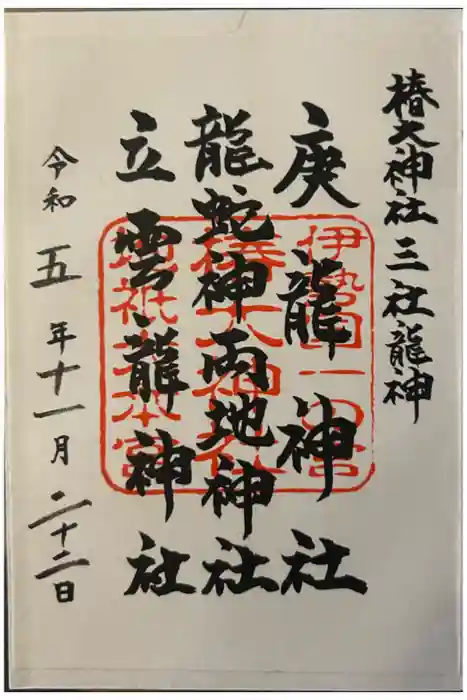 椿大神社 三社龍神
庚龍神社
龍蛇神両地神社
立雲龍神社
令和五年十一月二十二日
伊勢国一の宮
椿大神社
地祇大本宮